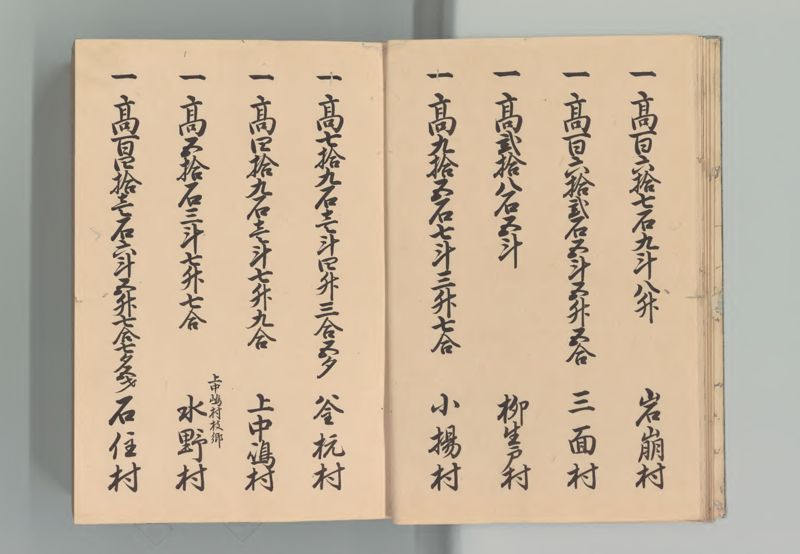 一 高百六拾七石九斗八升 岩崩村
一 高百六拾弐石五斗五升五合 三面村
一 高弐拾八石五斗 柳生戸村
一 高九拾五石七斗三升七合 小揚村
一 高七拾九石壱斗四升三合五夕 釜杭村
一 高四拾九石壱斗七升九合 上中嶋村
上中嶋村枝郷
一 高五拾石三斗七升七合 水野村
一 高百四拾壱石六斗五升七合七夕五才 石住村